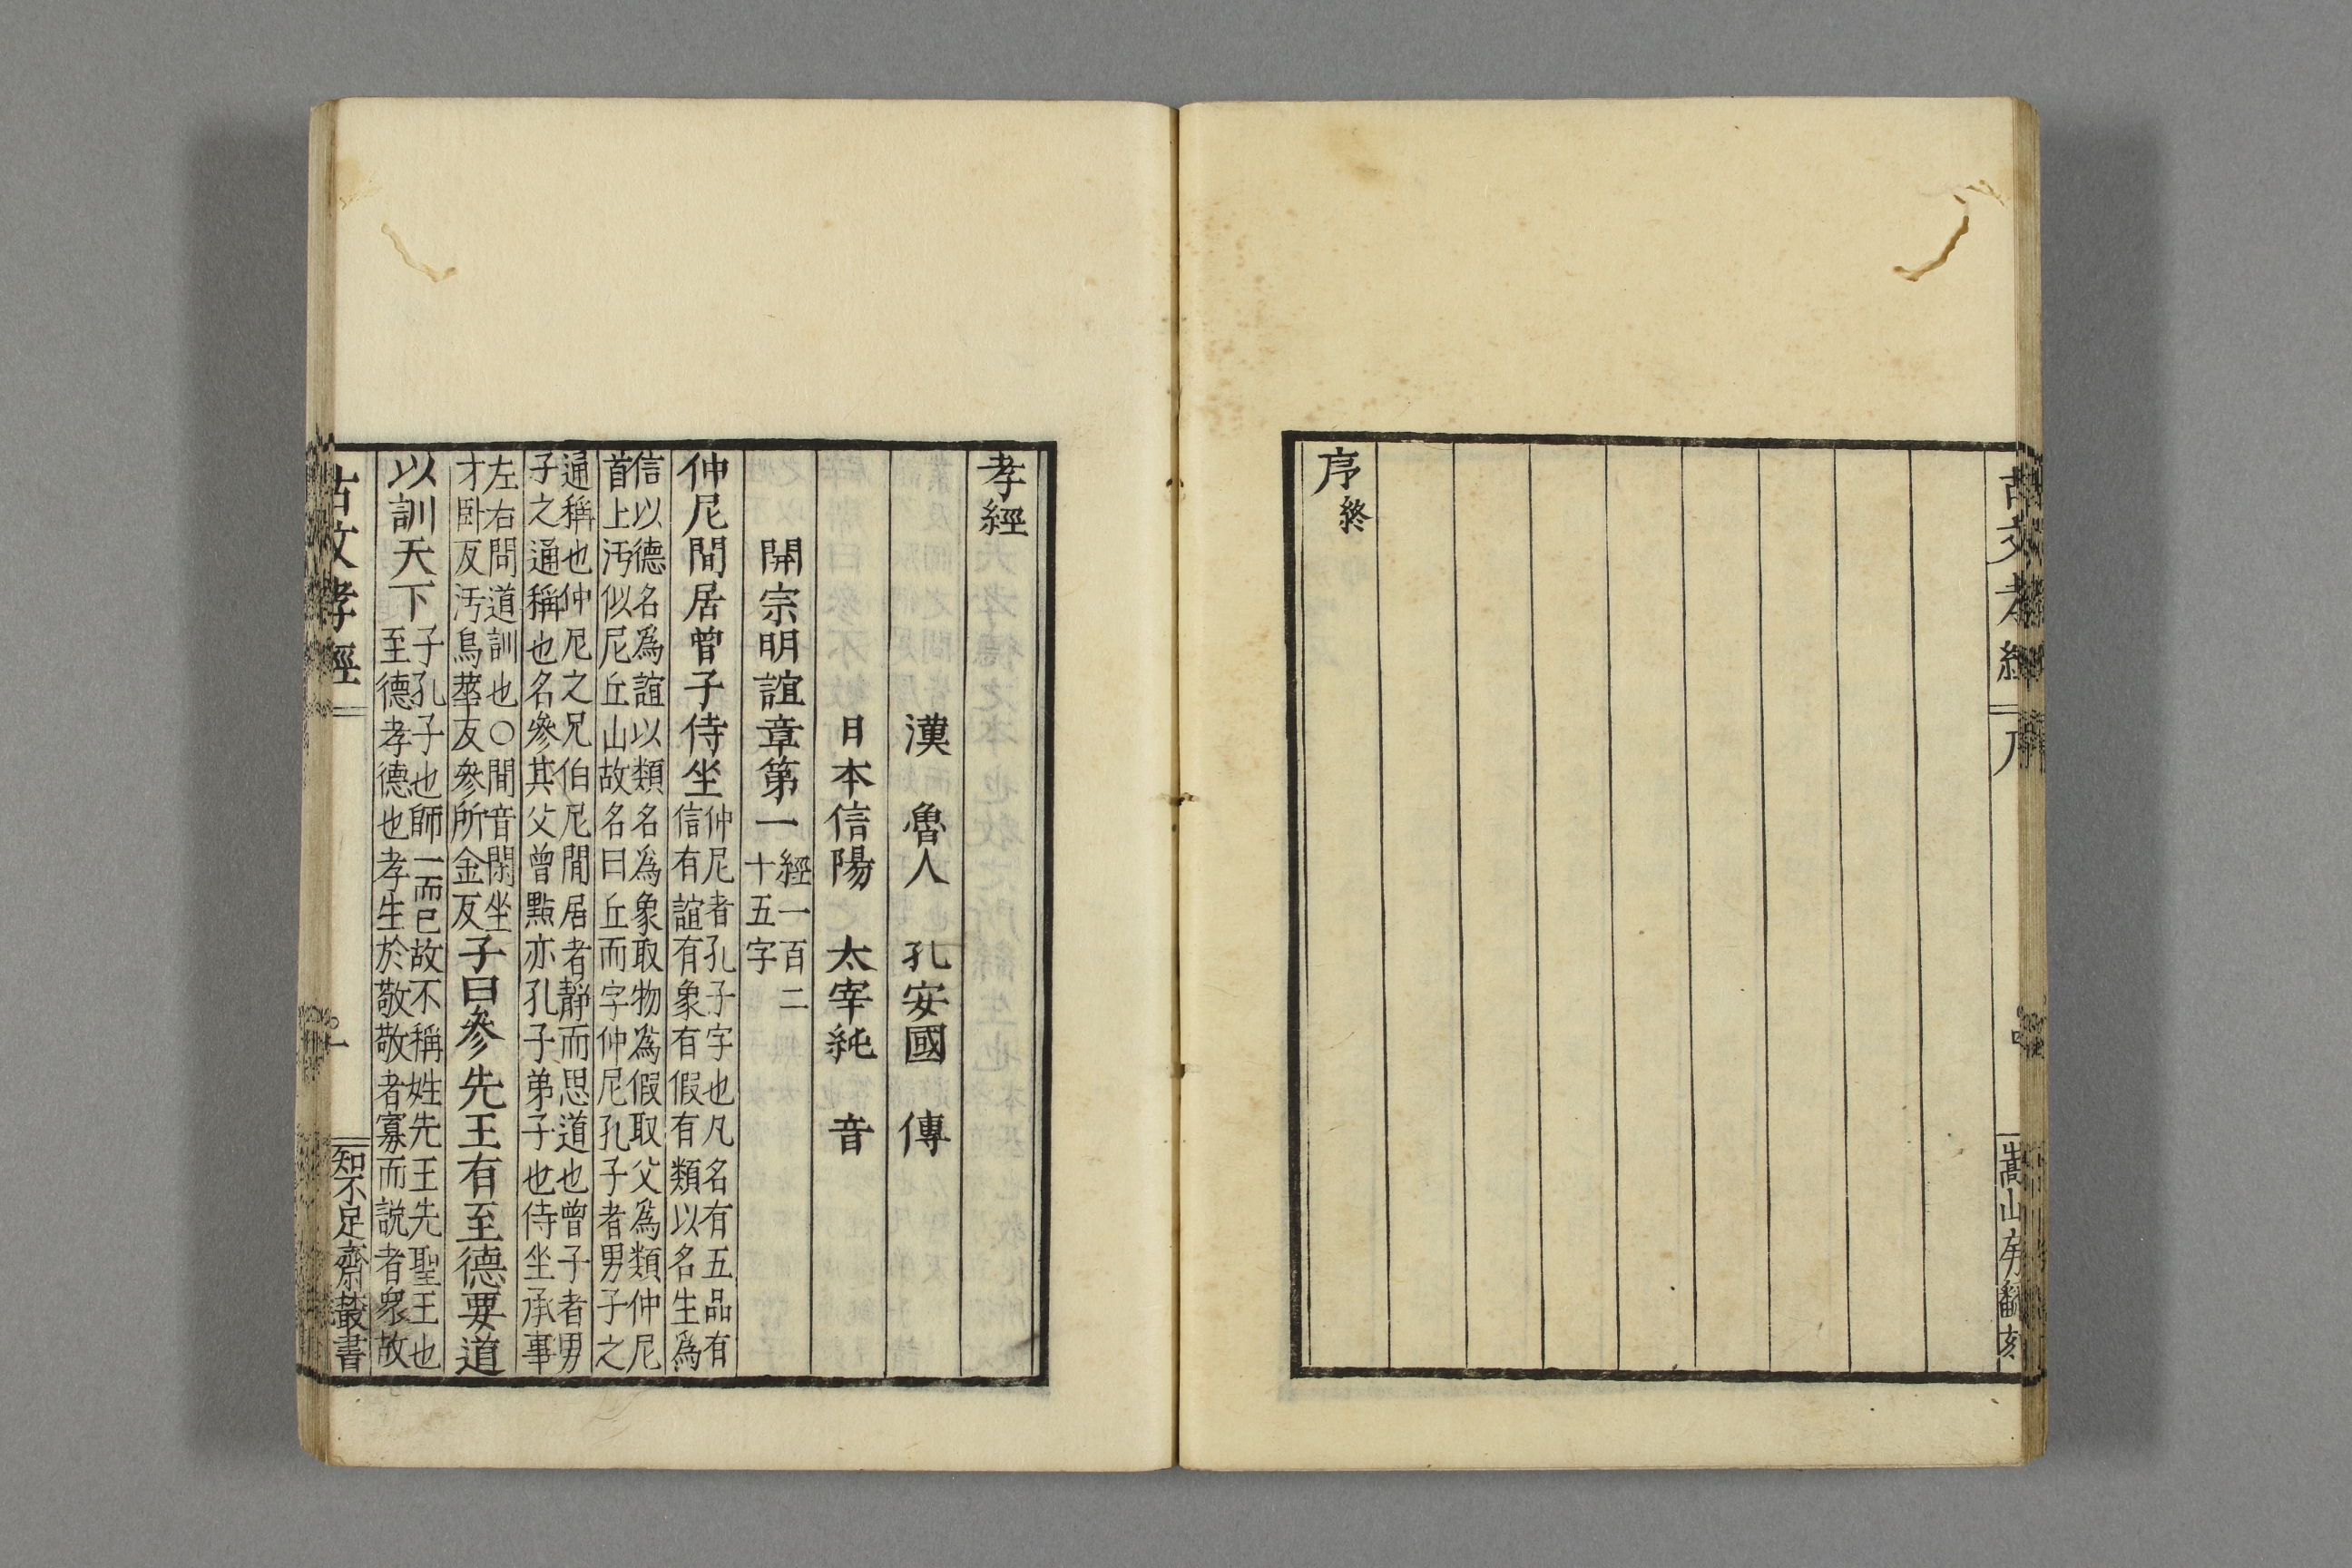 序終
古文孝經
嵩山房翻刻
孝經
漢 魯人 孔安國 傳
日本信陽 太宰純 音
開宗明誼章第一 經一百二
十五字
仲尼閒居曾子侍坐 仲尼者孔子字也凡名有五品有
信有誼有象有假有類以名生爲
信以德名爲誼以類名爲象取物爲假取父爲類仲尼
首上汚似尼丘山故名曰丘而字仲尼孔子者男子之
通稱也仲尼之兄伯尼閒居者靜而思道也曾子者男
子之通稱也名參其父曾點亦孔子弟子也侍坐承事
左右問道訓也○閒音閑坐
才臥反汚烏華反參所金反
子曰參先王有至德要道
以訓天下 子孔子也師一而已故不稱姓先王先聖王也
至德孝德也孝生於敬敬者寡而說者衆故
古文孝經
一
知不足齋叢書